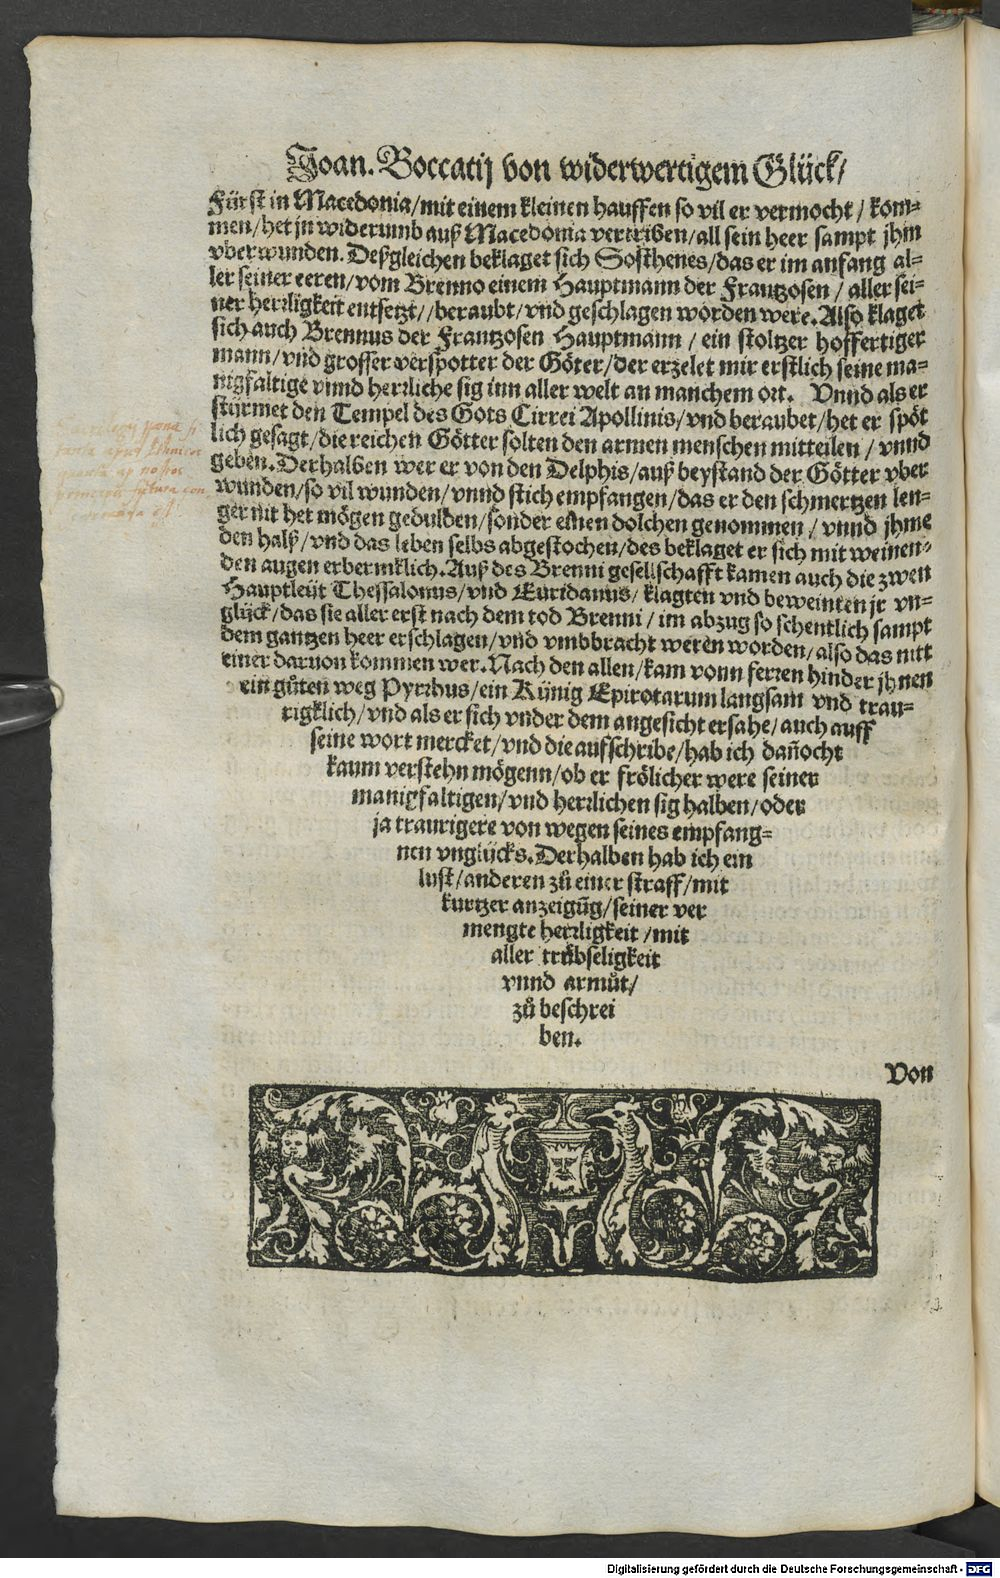 Joan. Boccatij von widerwertigem Glück/
Fürst in Macedonia/mit einem kleinen hauffen so vil er vermocht/ kom⸗
men/het jn widerumb auß Macedonia vertriben/all sein heer sampt jhm
vberwunden. Deßgleichen beklaget sich Sosthenes/das er im anfang al⸗
ler seiner eeren/vom Brenno einem Hauptmann der Frantzosen/ aller sei⸗
ner herrligkeit entsetzt//beraubt/vnd geschlagen worden were. Also klaget
sich auch Brennus der Frantzosen Hauptmann/ ein stoltzer hoffertiger
mann/vnd grosser verspotter der Göter/der erzelet mir erstlich seine ma⸗
nigfaltige vnnd herrliche sig inn aller welt an manchem ort. Vnnd als er
stürmet den Tempel des Gots Cirrei Apollinis/vnd beraubet/het er spöt
lich gesagt/die reichen Götter solten den armen menschen mitteilen/ vnnd
geben. Derhalben wer er von den Delphis/auß beystand der Götter vber
wunden/so vil wunden/vnnd stich empfangen/das er den schmertzen len⸗
ger nit het mögen gedulden/sonder einen dolchen genommen/ vnnd jhme
den halß/vnd das leben selbs abgestochen/des beklaget er sich mit weinen⸗
den augen erbermklich. Auß des Brenni gesellschafft kamen auch die zwen
Hauptleüt Thessalonus/vnd Euridanus/ klagten vnd beweinten jr vn⸗
glück/das sie aller erst nach dem tod Brenni/ im abzug so schentlich sampt
dem gantzen heer erschlagen/vnd vmbbracht weren worden/also das nitt
einer daruon kommen wer. Nach den allen/kam vonn ferren hinder jhnen
ein gůten weg Pyrrhus/ein Künig Epirotarum langsam vnd trau⸗
rigklich/vnd als er sich vnder dem angesicht ersahe/auch auff
seine wort mercket/vnd die aufschribe/hab ich dañocht
kaum verstehn mögenn/ob er frölicher were seiner
manigfaltigen/vnd herrlichen sig halben/oder
ja traurigere von wegen seines empfang⸗
nen vnglücks. Derhalben hab ich ein
lust/anderen zů einer straff/mit
kurtzer anzeigũg/seiner ver
mengte herrligkeit/mit
aller trübseligkeit
vnnd armůt/
zů beschrei
ben.
Von
pona si
tanta apud Ethnicos
quanta ap nostos
principes futura con
est
Digitalisierung gefördert durch die Deutsche Forschungsgemeinschaft - DFG